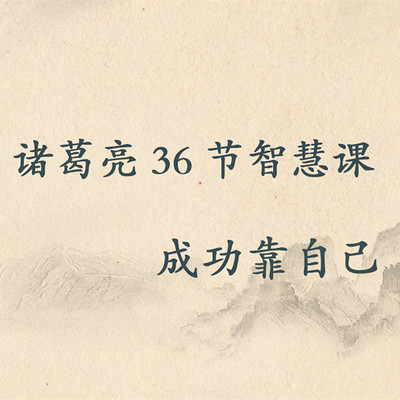 诸葛亮 36 节智慧课
成功靠自己